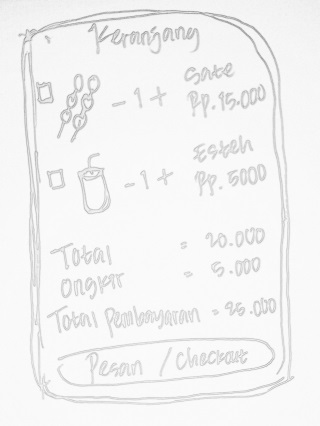 Keranjang
Sate
- 1 + Rp. 15.000
Esteh
- 1 + Rp. 5000
Total = 20.000
Ongkir = 5.000
Total Pembayaran = 25.000
Pesan / Checkout